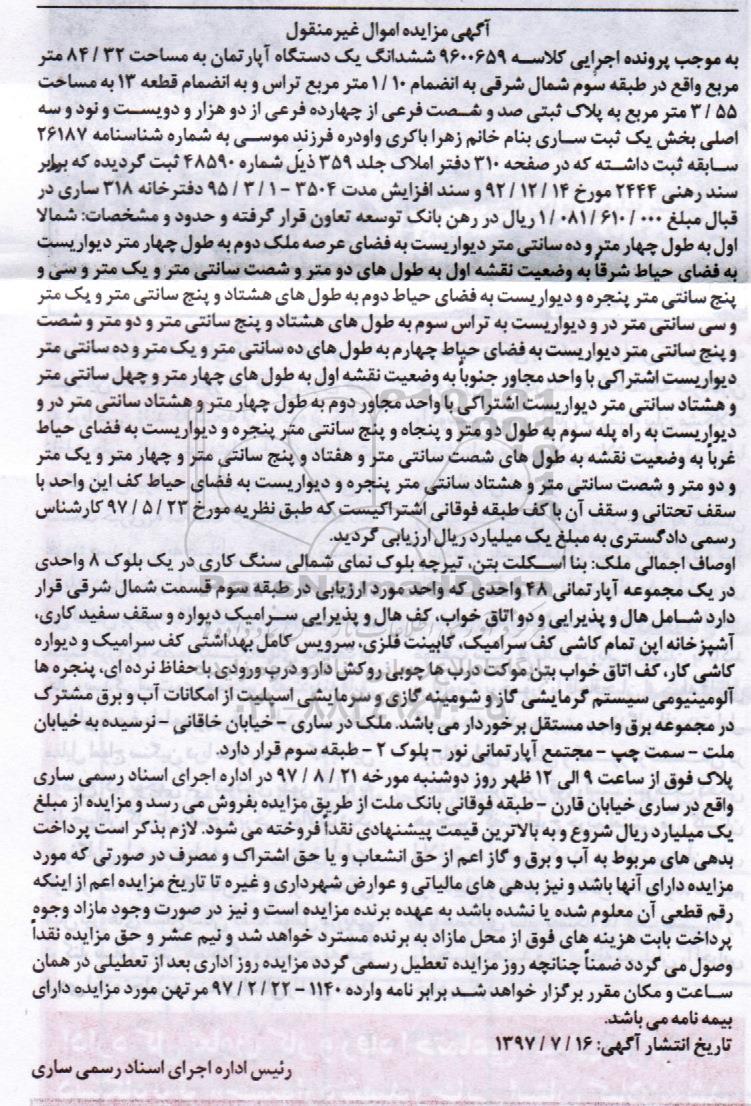 آگهی مزایده اموال غیرمنقول
به موجب پرونده اجرایی کلاسه ۹۶۰۰۶۵۹ ششدانگ یک دستگاه آپارتمان به مساحت ۸۴/۳۲ متر
مربع واقع در طبقه سوم شمال شرقی به انضمام ۱/۱۰ متر مربع تراس و به انضمام قطعه ۱۳ به مساحت
۳/۵۵ متر مربع به پلاک ثبتی صد و شصت فرعی از چهارده فرعی از دو هزار و دویست و نود و سه
اصلی بخش یک ثبت ساری بنام خانم زهرا باکری واودره فرزند موسی به شماره شناسنامه ۲۶۱۸۷
سابقه ثبت داشته که در صفحه ۳۱۰ دفتر املاک جلد ۳۵۹ ذیل شماره ۴۸۵۹۰ ثبت گردیده که برابر
سند رهنی ۲۴۴۴ مورخ ۹۲/۱۲/۱۴ و سند افزایش مدت ۳۵۰۴ - ۹۵/۳/۱ دفترخانه ۳۱۸ ساری در
قبال مبلغ ۱/۰۸۱/۶۱۰/۰۰۰ ریال در رهن بانک توسعه تعاون قرار گرفته و حدود و مشخصات: شمالا
اول به طول چهار متر و ده سانتی متر دیواریست به فضای عرصه ملک دوم به طول چهار متر دیواریست
به فضای حیاط شرقاً به وضعیت نقشه اول به طول های دو متر و شصت سانتی متر و یک متر و سی و
پنج سانتی متر پنجره و دیواریست به فضای حیاط دوم به طول های هشتاد و پنج سانتی متر و یک متر
و سی سانتی متر در و دیواریست به تراس سوم به طول های هشتاد و پنج سانتی متر و دو متر و شصت
و پنج سانتی متر دیواریست به فضای حیاط چهارم به طول های ده سانتی متر و یک متر و ده سانتی متر
دیواریست اشتراکی با واحد مجاور جنوباً به وضعیت نقشه اول به طول های چهار متر و چهل سانتی متر
و هشتاد سانتی متر دیواریست اشتراکی با واحد مجاور دوم به طول چهار متر و هشتاد سانتی متر در و
دیواریست به راه پله سوم به طول دو متر و پنجاه و پنج سانتی متر پنجره و دیواریست به فضای حیاط
غرباً به وضعیت نقشه به طول های شصت سانتی متر و هفتاد و پنج سانتی متر و چهار متر و یک متر
و دو متر و شصت سانتی متر و هشتاد سانتی متر پنجره و دیواریست به فضای حیاط کف این واحد با
سقف تحتانی و سقف آن با کف طبقه فوقانی اشتراکیست که طبق نظریه مورخ ۹۷/۵/۲۳ کارشناس
رسمی دادگستری به مبلغ یک میلیارد ریال ارزیابی گردید.
اوصاف اجمالی ملک: بنا اسکلت بتن، تیرچه بلوک نمای شمالی سنگ کاری در یک بلوک ۸ واحدی
در یک مجموعه آپارتمانی ۴۸ واحدی که واحد مورد ارزیابی در طبقه سوم قسمت شمال شرقی قرار
دارد شامل هال و پذیرایی و دو اتاق خواب، کف هال و پذیرایی سرامیک دیواره و سقف سفید کاری،
آشپزخانه اپن تمام کاشی کف سرامیک، کابینت فلزی، سرویس کامل بهداشتی کف سرامیک و دیواره
کاشی کار، کف اتاق خواب بتن موکت درب ها چوبی روکش دار و درب ورودی با حفاظ نرده ای، پنجره ها
آلومینیومی سیستم گرمایشی گاز و شومینه گازی و سرمایشی اسپلیت از امکانات آب و برق مشترک
در مجموعه برق واحد مستقل برخوردار می باشد. ملک در ساری - خیابان خاقانی - نرسیده به خیابان
ملت - سمت چپ - مجتمع آپارتمانی نور - بلوک ۲ - طبقه سوم قرار دارد.
پلاک فوق از ساعت ۹ الی ۱۲ ظهر روز دوشنبه مورخه ۹۷/۸/۲۱ در اداره اجرای اسناد رسمی ساری
واقع در ساری خیابان قارن - طبقه فوقانی بانک ملت از طریق مزایده بفروش می رسد و مزایده از مبلغ
یک میلیارد ریال شروع و به بالاترین قیمت پیشنهادی نقداً فروخته می شود. لازم بذکر است پرداخت
بدهی های مربوط به آب و برق و گاز اعم از حق انشعاب و یا حق اشتراک و مصرف در صورتی که مورد
مزایده دارای آنها باشد و نیز بدهی های مالیاتی و عوارض شهرداری و غیره تا تاریخ مزایده اعم از اینکه
رقم قطعی آن معلوم شده یا نشده باشد به عهده برنده مزایده است و نیز در صورت وجود مازاد وجوه
پرداخت بابت هزینه های فوق از محل مازاد به برنده مسترد خواهد شد و نیم عشر و حق مزایده نقداً
وصول می گردد ضمناً چنانچه روز مزایده تعطیل رسمی گردد مزایده روز اداری بعد از تعطیلی در همان
ساعت و مکان مقرر برگزار خواهد شد برابر نامه وارده ۱۱۴۰ - ۹۷/۲/۲۲ مرتهن مورد مزایده دارای
بیمه نامه می باشد.
تاریخ انتشار آگهی: ۱۳۹۷/۷/۱۶
رئیس اداره اجرای اسناد رسمی ساری
ParsNamadData
۰۲۱-۸۸۳۴۹۶۷۰-۵